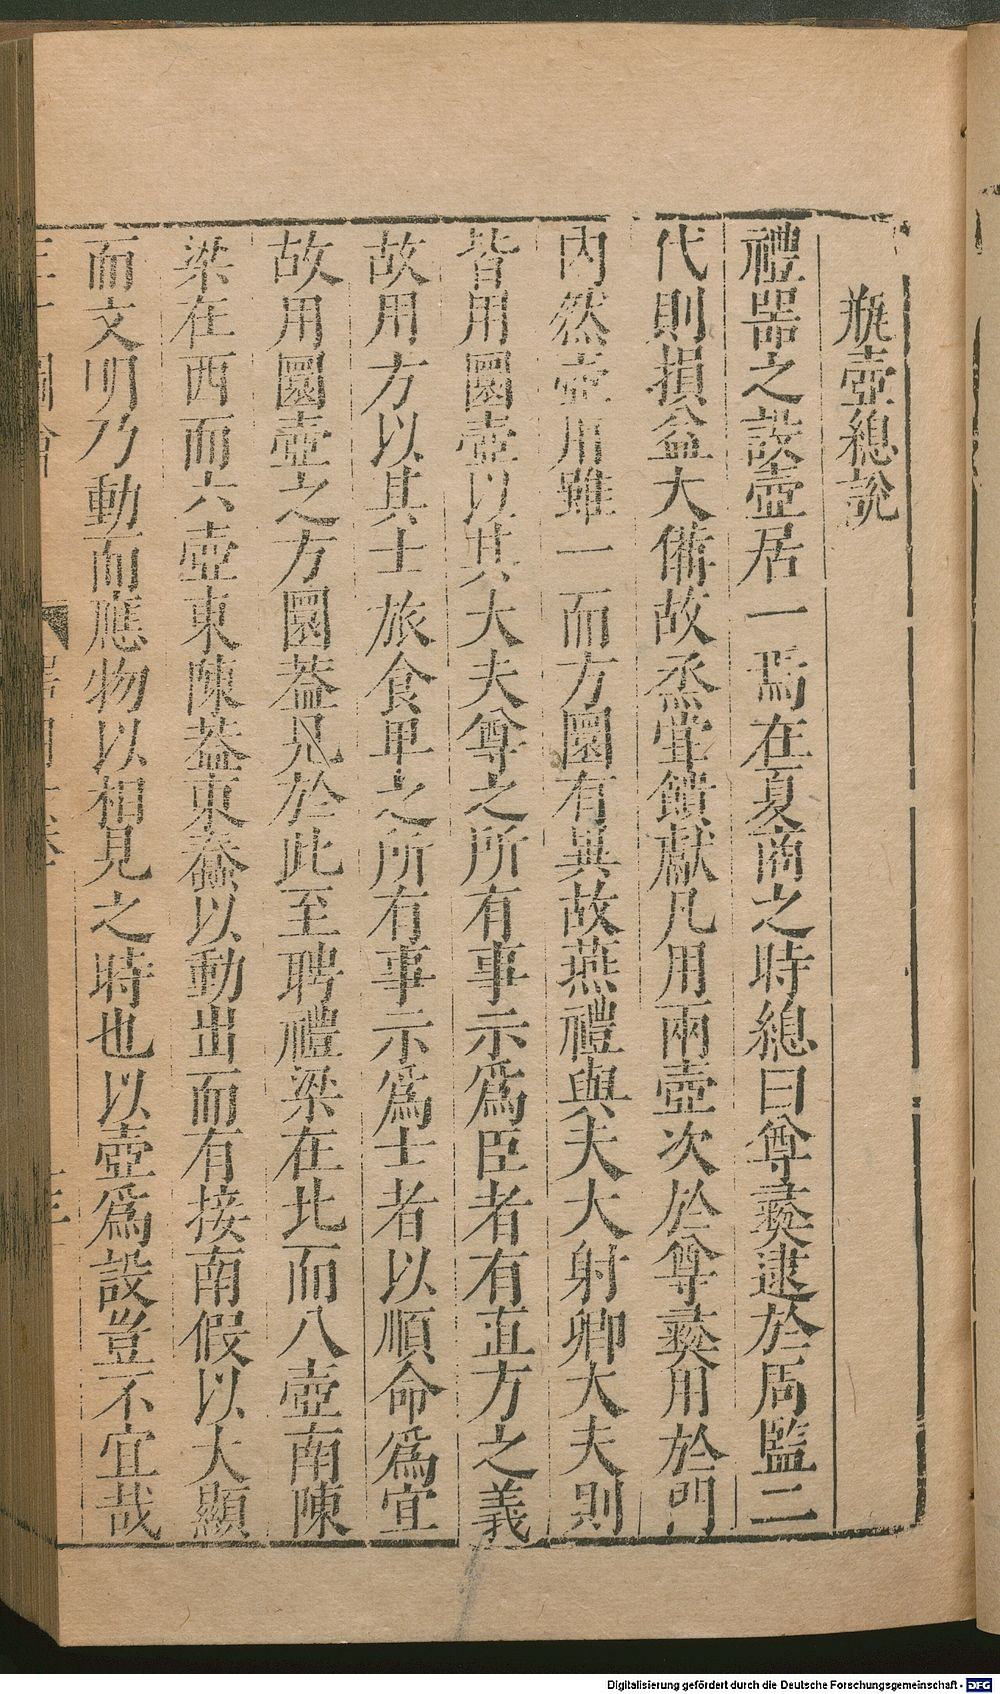 瓶壺總說
禮器之設壺居一焉在夏商之時總曰尊彝逮於周監二
代則損益大備故烝甞饋獻凡用兩壺次於尊彝用於門
內然壺用雖一而方圜有異故燕禮與夫大射卿大夫則
皆用圜壺以其大夫尊之所有事示為臣者有直方之義
故用方以其士旅食卑之所有事示為士者以順命為宜
故用圜壺之方圜葢見於此至聘禮梁在北而八壺南陳
梁在西而六壺東陳葢東蠢以動出而有接南假以大顯
而文明乃動而應物以相見之時也以壺為設豈不宜哉
Digitalisierung gefördert durch die Deutsche Forschungsgemeinschaft - DFG